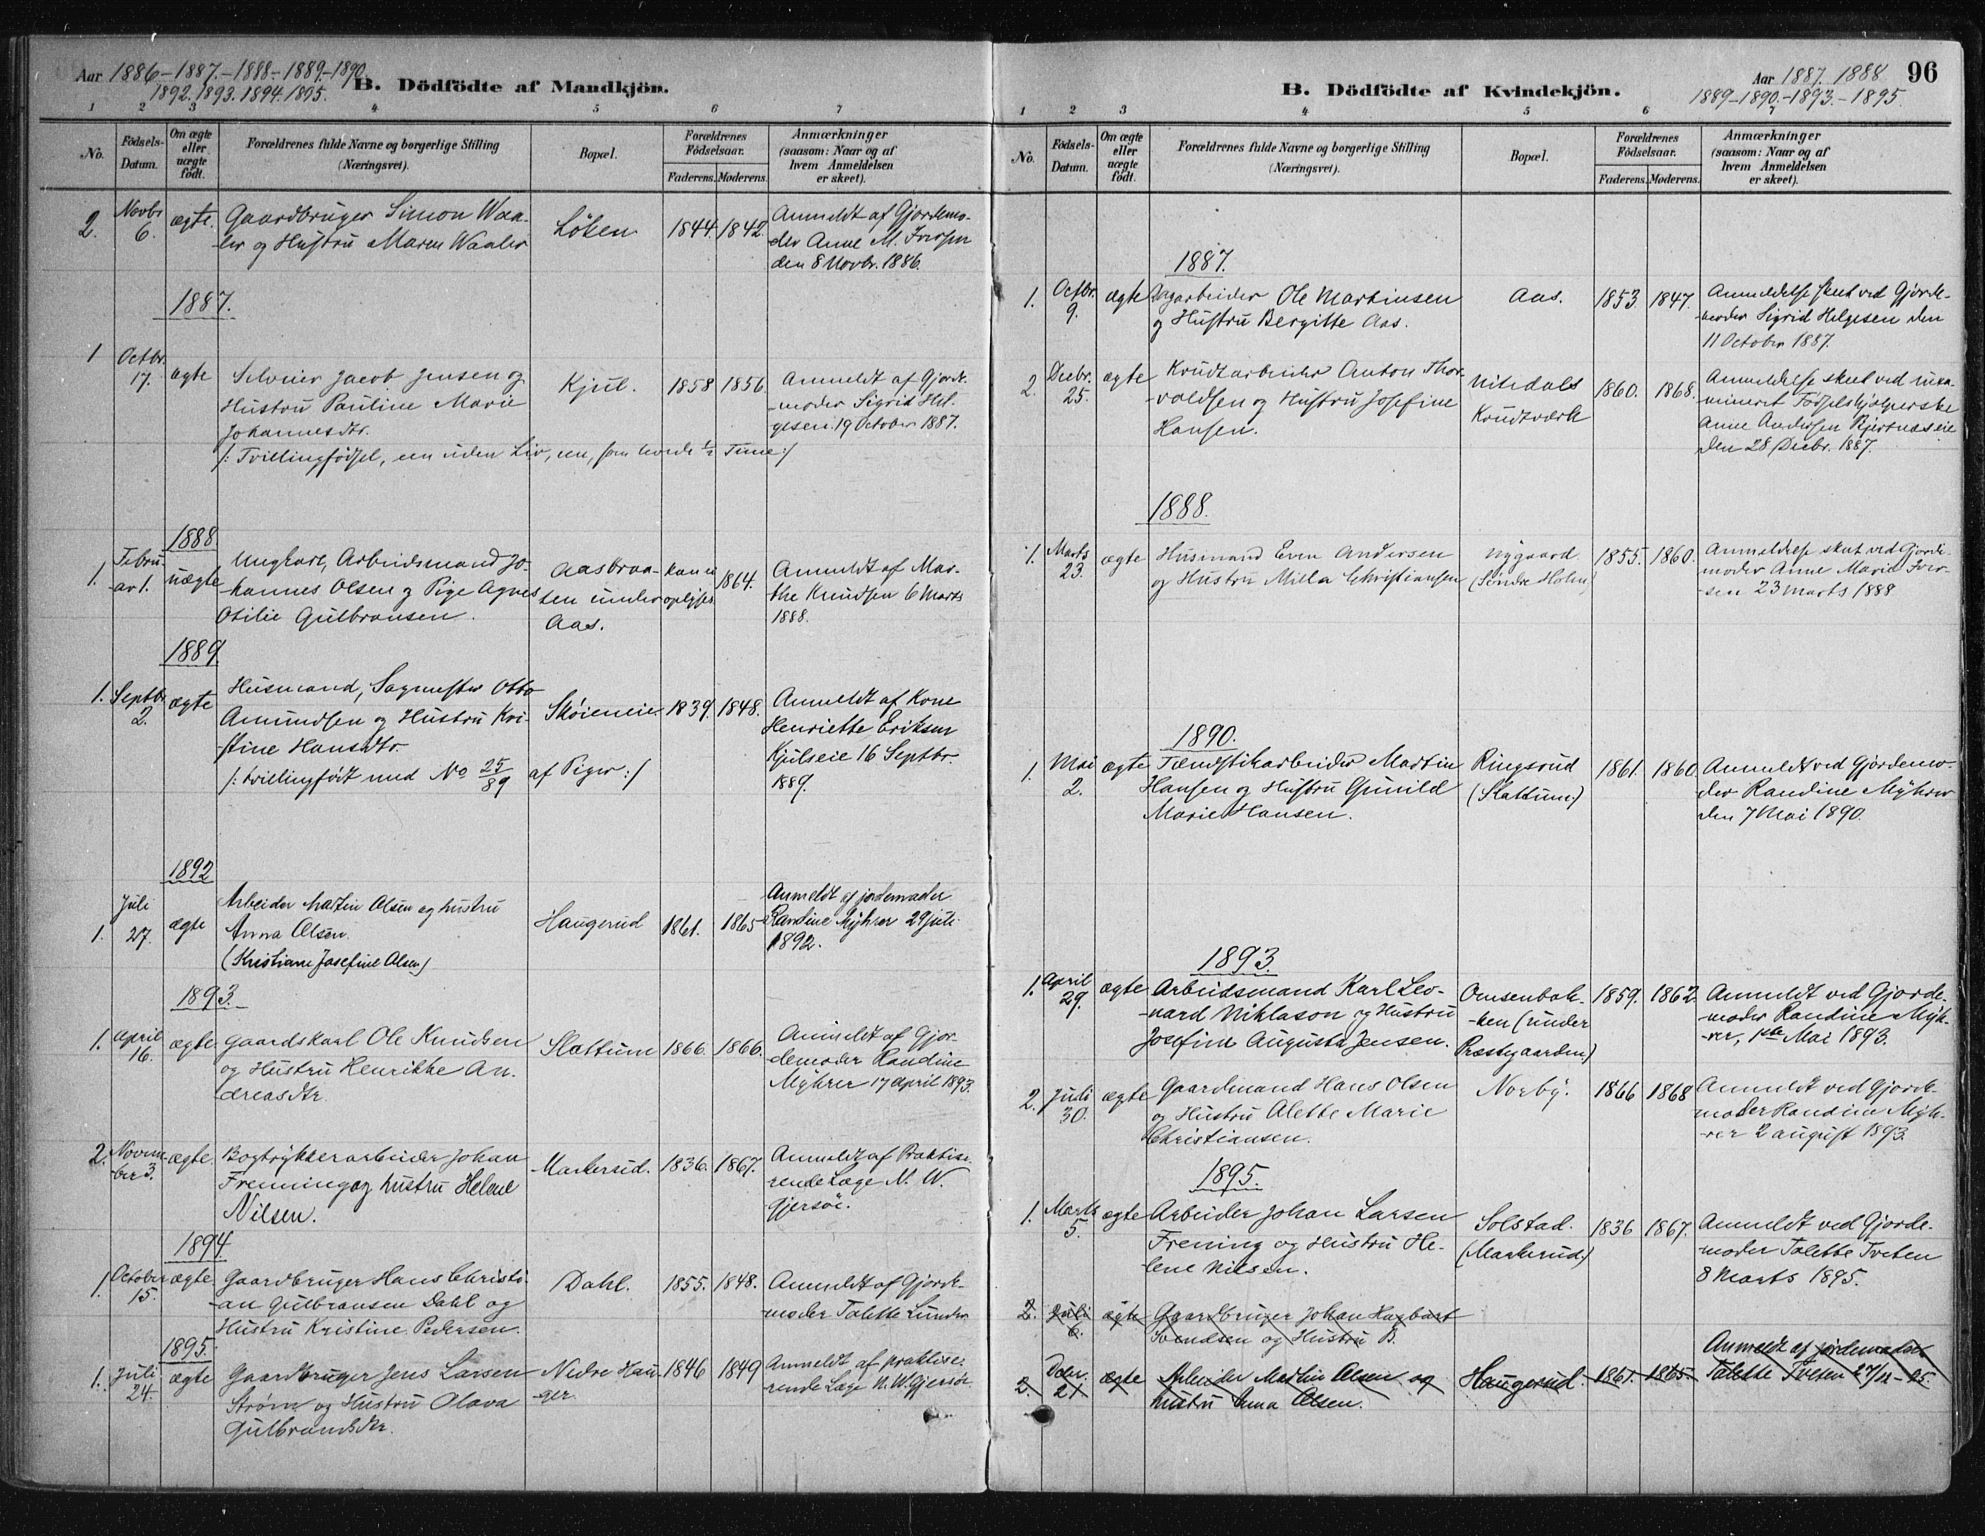 Aar 1886-1887.-1888-1889.-1890.
1892.1893.1894.1895.
B. Dödfödte af Mandkjön.
1 2 3 4 5 6 7
No.
Födsels-
Datum.
Om ægte
eller
uægte
födt.
Forældrenes fulde Navne og borgerlige Stilling
(Næringsvei).
Bopæl.
Forældrenes
Födselsaar.
Faderens. Moderens.
Anmærkninger
(saasom: Naar og af
hvem Anmeldelsen
er skeet).
2. Novbr. 6. ægte. Gaardbruger Simon Waa-
ler og Hustru Maren Waaler
Løken 1844. 1842.
Anmeldt af Gjordemo-
der Anne M. Iversen
den 8 Novbr. 1886.
1887.
1 Octbr. 17. ægte Selveier Jacob Jensen og
Hustru Pauline Marie
Johannesdtr.
Kjul. 1858 1856.
Anmeldt af Gjorde-
moder Sigrid Hel-
gesen 19 October 1887.
/: Tvillingfödsel, een uden Liv, een, som levede 1/2 Time :/
1888.
1. Februar 1. uægte Ungkarl, Arbeidsmand Jo-
hannes Olsen og Pige Agnes
Otilie Gulbransen.
Aasbraa-
ten under
Aas.
kan ei
oplyses
1864.
Anmeldt af Mar-
the Knudsen 6 Marts
1888.
1889.
1. Septbr. 2. ægte Husmand, Sagmester Otto
Amundsen og Hustru Kri-
stine Hansdtr.
Skøieneie 1839. 1848.
/: tvillingfödt med No 25/89 af Piger :/
Anmeldt af Kone
Henriette Eriksen
Kjulseie 16 Septbr.
1889.
1892
1. Juli 27. ægte Arbeider Martin Olsen og hustru
Anna Olsen.
(Kristiane Josefine Olsen)
Haugerud 1861. 1865
Anmeldt af jordemoder
Randine Myhrer 29 juli
1892.
1893.
1. April 16. ægte Gaardskarl Ole Knudsen
og Hustru Henrikke An-
dreasdtr.
Slattum 1866. 1866.
Anmeldt af Gjor-
demoder Randine
Myhrer 17 April 1893.
2. November 3. ægte. Bogtrykkerarbeider Johan
Frenning og hustru Helene
Nilsen.
Markerud. 1836. 1867.
Anmeldt af Praktise-
rende Læge N. W.
Gjersøe.
1894.
1. October 15. ægte. Gaardbruger Hans Christi-
an Gulbransen Dahl og
Hustru Kristine Pedersen.
Dahl. 1855. 1848.
Anmeldt af Gjorde-
moder Talette Lunder
1895.
1. Juli 24. ægte Gaardbruger Jens Larsen
Strøm og Hustru Olava
Gulbrandsdtr.
Nedre Hau-
ger
1846 1849
Anmeldt af praktise-
rende Læge N. W. Gjersöe.
Aar 1887. 1888 96
1889-1890.-1893.-1895.
B. Dödfödte af Kvindekjön.
1 2 3 4 5 6 7
No.
Födsels-
Datum.
Om ægte
eller
uægte
födt.
Forældrenes fulde Navne og borgerlige Stilling
(Næringsvei).
Bopæl.
Forældrenes
Födselsaar.
Faderens. Moderens.
Anmærkninger
(saasom: Naar og af
hvem Anmeldelsen
er skeet).
1887.
1. Octbr. 9. ægte Dagarbeider Ole Martinsen
og Hustru Bergitte Aas.
Aas. 1853 1847.
Anmeldelse skeet ved Gjorde-
moder Sigrid Helgesen den
11 October 1887.
2. Decbr. 25. ægte Krudtarbeider Anton Thor-
valdsen og Hustru Josefine
Hansen.
Nitedals
Krudtværk
1860. 1868.
Anmeldelse skeet ved uexa-
mineret Födselshjælperske
Anne Andersen Bjertnæseie
den 28 Decbr. 1887.
1888.
1. Marts 23. ægte Husmand Even Andersen
og Hustru Milla Christiansen
Nygaard
(Søndre Holm)
1855. 1860.
Anmeldelse skeet ved Gjorde-
moder Anne Marie Iver-
sen 23 Marts 1888
1890.
1. Mai 2. ægte Tændstikarbeider Martin
Hansen og Hustru Gunild
Marie Hansen.
Ringsrud
(Slattum)
1861. 1860.
Anmeldt ved Gjordemo-
der Randine Myhrer
den 7 Mai 1890.
1893.
1. April 29. ægte Arbeidsmand Karl Leo-
nard Niklason og Hustru
Josefine Augusta Jensen.
Omsenbak-
ken (under
Præstegaarden)
1859. 1862.
Anmeldt ved Gjorde-
moder Randine Myh-
rer, 1ste Mai 1893.
2. Juli 30. ægte Gaardmand Hans Olsen
og Hustru Alette Marie
Christiansen.
Norby. 1866 1868
Anmeldt ved Gjorde-
moder Randine Myh-
rer 2 august 1893.
1895.
1. Marts 5. ægte Arbeider Johan Larsen
Frening og Hustru He-
lene Nilsen.
Solstad.
(Markerud.)
1836 1867.
Anmeldt ved Gjorde-
moder Talette Tveten
8 Marts 1895.
2. Juli 6. ægte Gaardbruger Johan Hagbart
Svendsen og Hustru B.
2. Decbr. 21 ægte Arbeider Martin Olsen og
hustru Anna Olsen.
Haugerud. 1861. 1865.
Anmeldt af jordemoder
Talette Tveten 27/12-95.